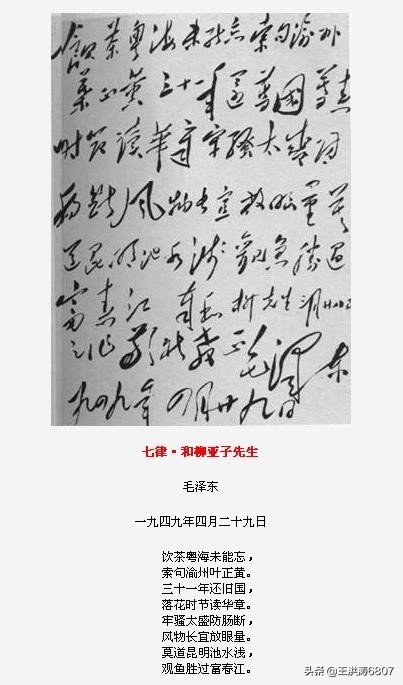 飲茶粤海未能忘索句渝州
葉正黄三十一年還舊國落花
时節读華章牢騷太盛防
腸断风物长宜放眼量莫
道昆明池水浅觀魚勝过
富春江 奉和柳先生三月廿八日
之作敬祈教正 毛泽东
一九四九年四月廿九日
七律·和柳亚子先生
毛泽东
一九四九年四月二十九日
饮茶粤海未能忘，
索句渝州叶正黄。
三十一年还旧国，
落花时节读华章。
牢骚太盛防肠断，
风物长宜放眼量。
莫道昆明池水浅，
观鱼胜过富春江。
头条 @王洪涛6807